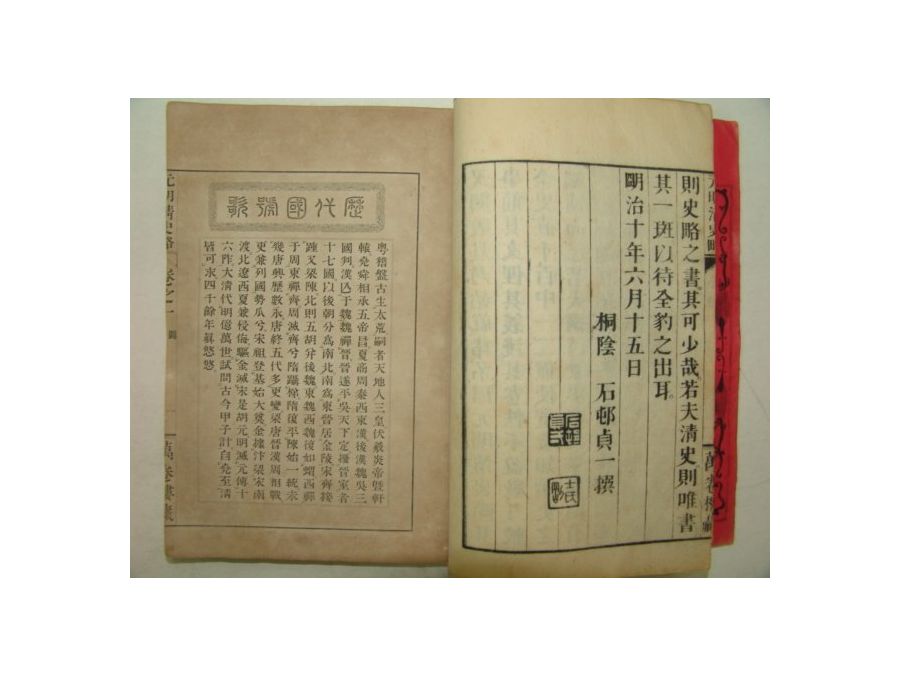 則史略之書其可少哉若夫清史則唯書
其一斑以待全豹之出耳
明治十年六月十五日
桐陰　石邨貞一撰
歷代國號歌
粤稽盤古生太荒嗣者天地人三皇伏羲炎帝曁軒
轅堯舜相承五帝昌夏商周秦西東漢後漢魏吳三
國判漢亡于魏魏禪晉晉遂平吳天下定擾晉室者
十七國以後朝分爲南北南爲東晉居金陵宋齊接
踵又梁陳北則五胡幷後魏東魏西魏後如蝟西禪
于周東禪齊周滅齊兮隋躡梯隋復平陳始一統未
幾唐興歷數永唐終五代多更變梁唐晉漢周相戰
更兼列國勢瓜分宋祖登基始大奠金據汴梁宋南
渡北遼西夏兼侵侮驅金滅宋是胡元明滅元傳十
六阼大清代明億萬世試問古今甲子計自堯至清
皆可求四千餘年眞悠悠
元明清史略
卷之一
萬卷樓藏